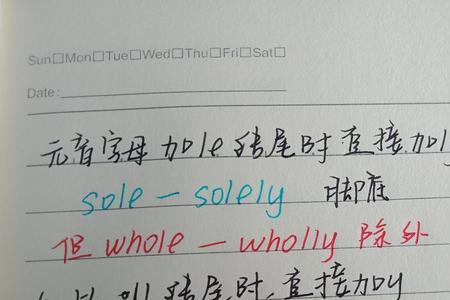 Sun□Mon□Tue□Wed□Thu□Fri□Sat□
Date:
元音字母加le结尾时直接加ly
sole — solely 脚底
但 whole — wholly 除外
ll结尾时,直接加y